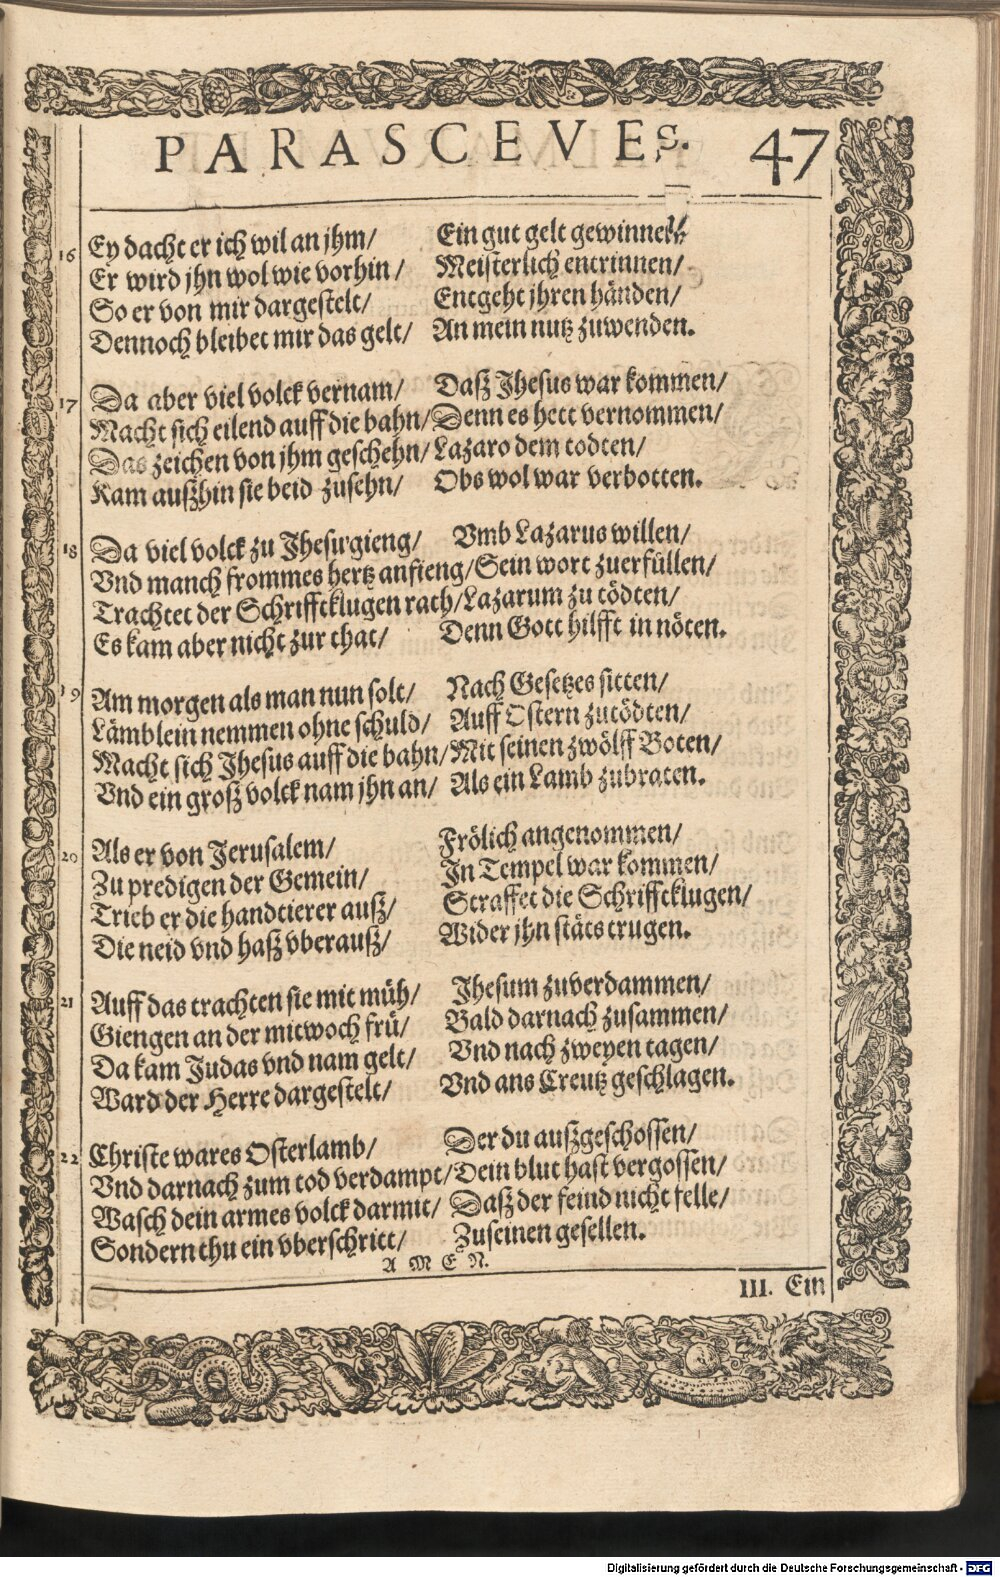 PARASCEVES. 47
16 Ey dacht er ich wil an jhm/ Ein gut gelt gewinnen/
Er wird jhn wol wie vorhin/ Meisterlich entrinnen/
So er von mir dargestelt/ Entgeht jhren händen/
Dennoch bleibet mir das gelt/ An mein nutz zuwenden.
17 Da aber viel volck vernam/ Daß Jhesus war kommen/
Macht sich eilend auff die bahn/ Denn es hett vernommen/
Das zeichen von jhm geschehn/ Lazaro dem todten/
Kam außhin sie beid zusehn/ Obs wol war verbotten.
18 Da viel volck zu Jhesu gieng/ Vmb Lazarus willen/
Vnd manch frommes hertz anfieng/ Sein wort zuerfüllen/
Trachtet der Schrifftklugen rath/ Lazarum zu tödten/
Es kam aber nicht zur that/ Denn Gott hilfft in nöten.
19 Am morgen als man nun solt/ Nach Gesetzes sitten/
Lämblein nemmen ohne schuld/ Auff Ostern zutödten/
Macht sich Jhesus auff die bahn/ Mit seinen zwölff Boten/
Vnd ein groß volck nam jhn an/ Als ein Lamb zubraten.
20 Als er von Jerusalem/ Frölich angenommen/
Zu predigen der Gemein/ In Tempel war kommen/
Trieb er die handtierer auß/ Straffet die Schrifftklugen/
Die neid vnd haß vberauß/ Wider jhn stäts trugen.
21 Auff das trachten sie mit müh/ Jhesum zuverdammen/
Giengen an der mitwoch frü/ Bald darnach zusammen/
Da kam Judas vnd nam gelt/ Vnd nach zweyen tagen/
Ward der Herre dargestelt/ Vnd ans Creutz geschlagen.
22 Christe wares Osterlamb/ Der du außgeschossen/
Vnd darnach zum tod verdampt/ Dein blut hast vergossen/
Wasch dein armes volck darmit/ Daß der feind nicht felle/
Sondern thu ein vberschritt/ Zu seinen gesellen.
A M E N.
III. Ein
Digitalisierung gefördert durch die Deutsche Forschungsgemeinschaft - DFG